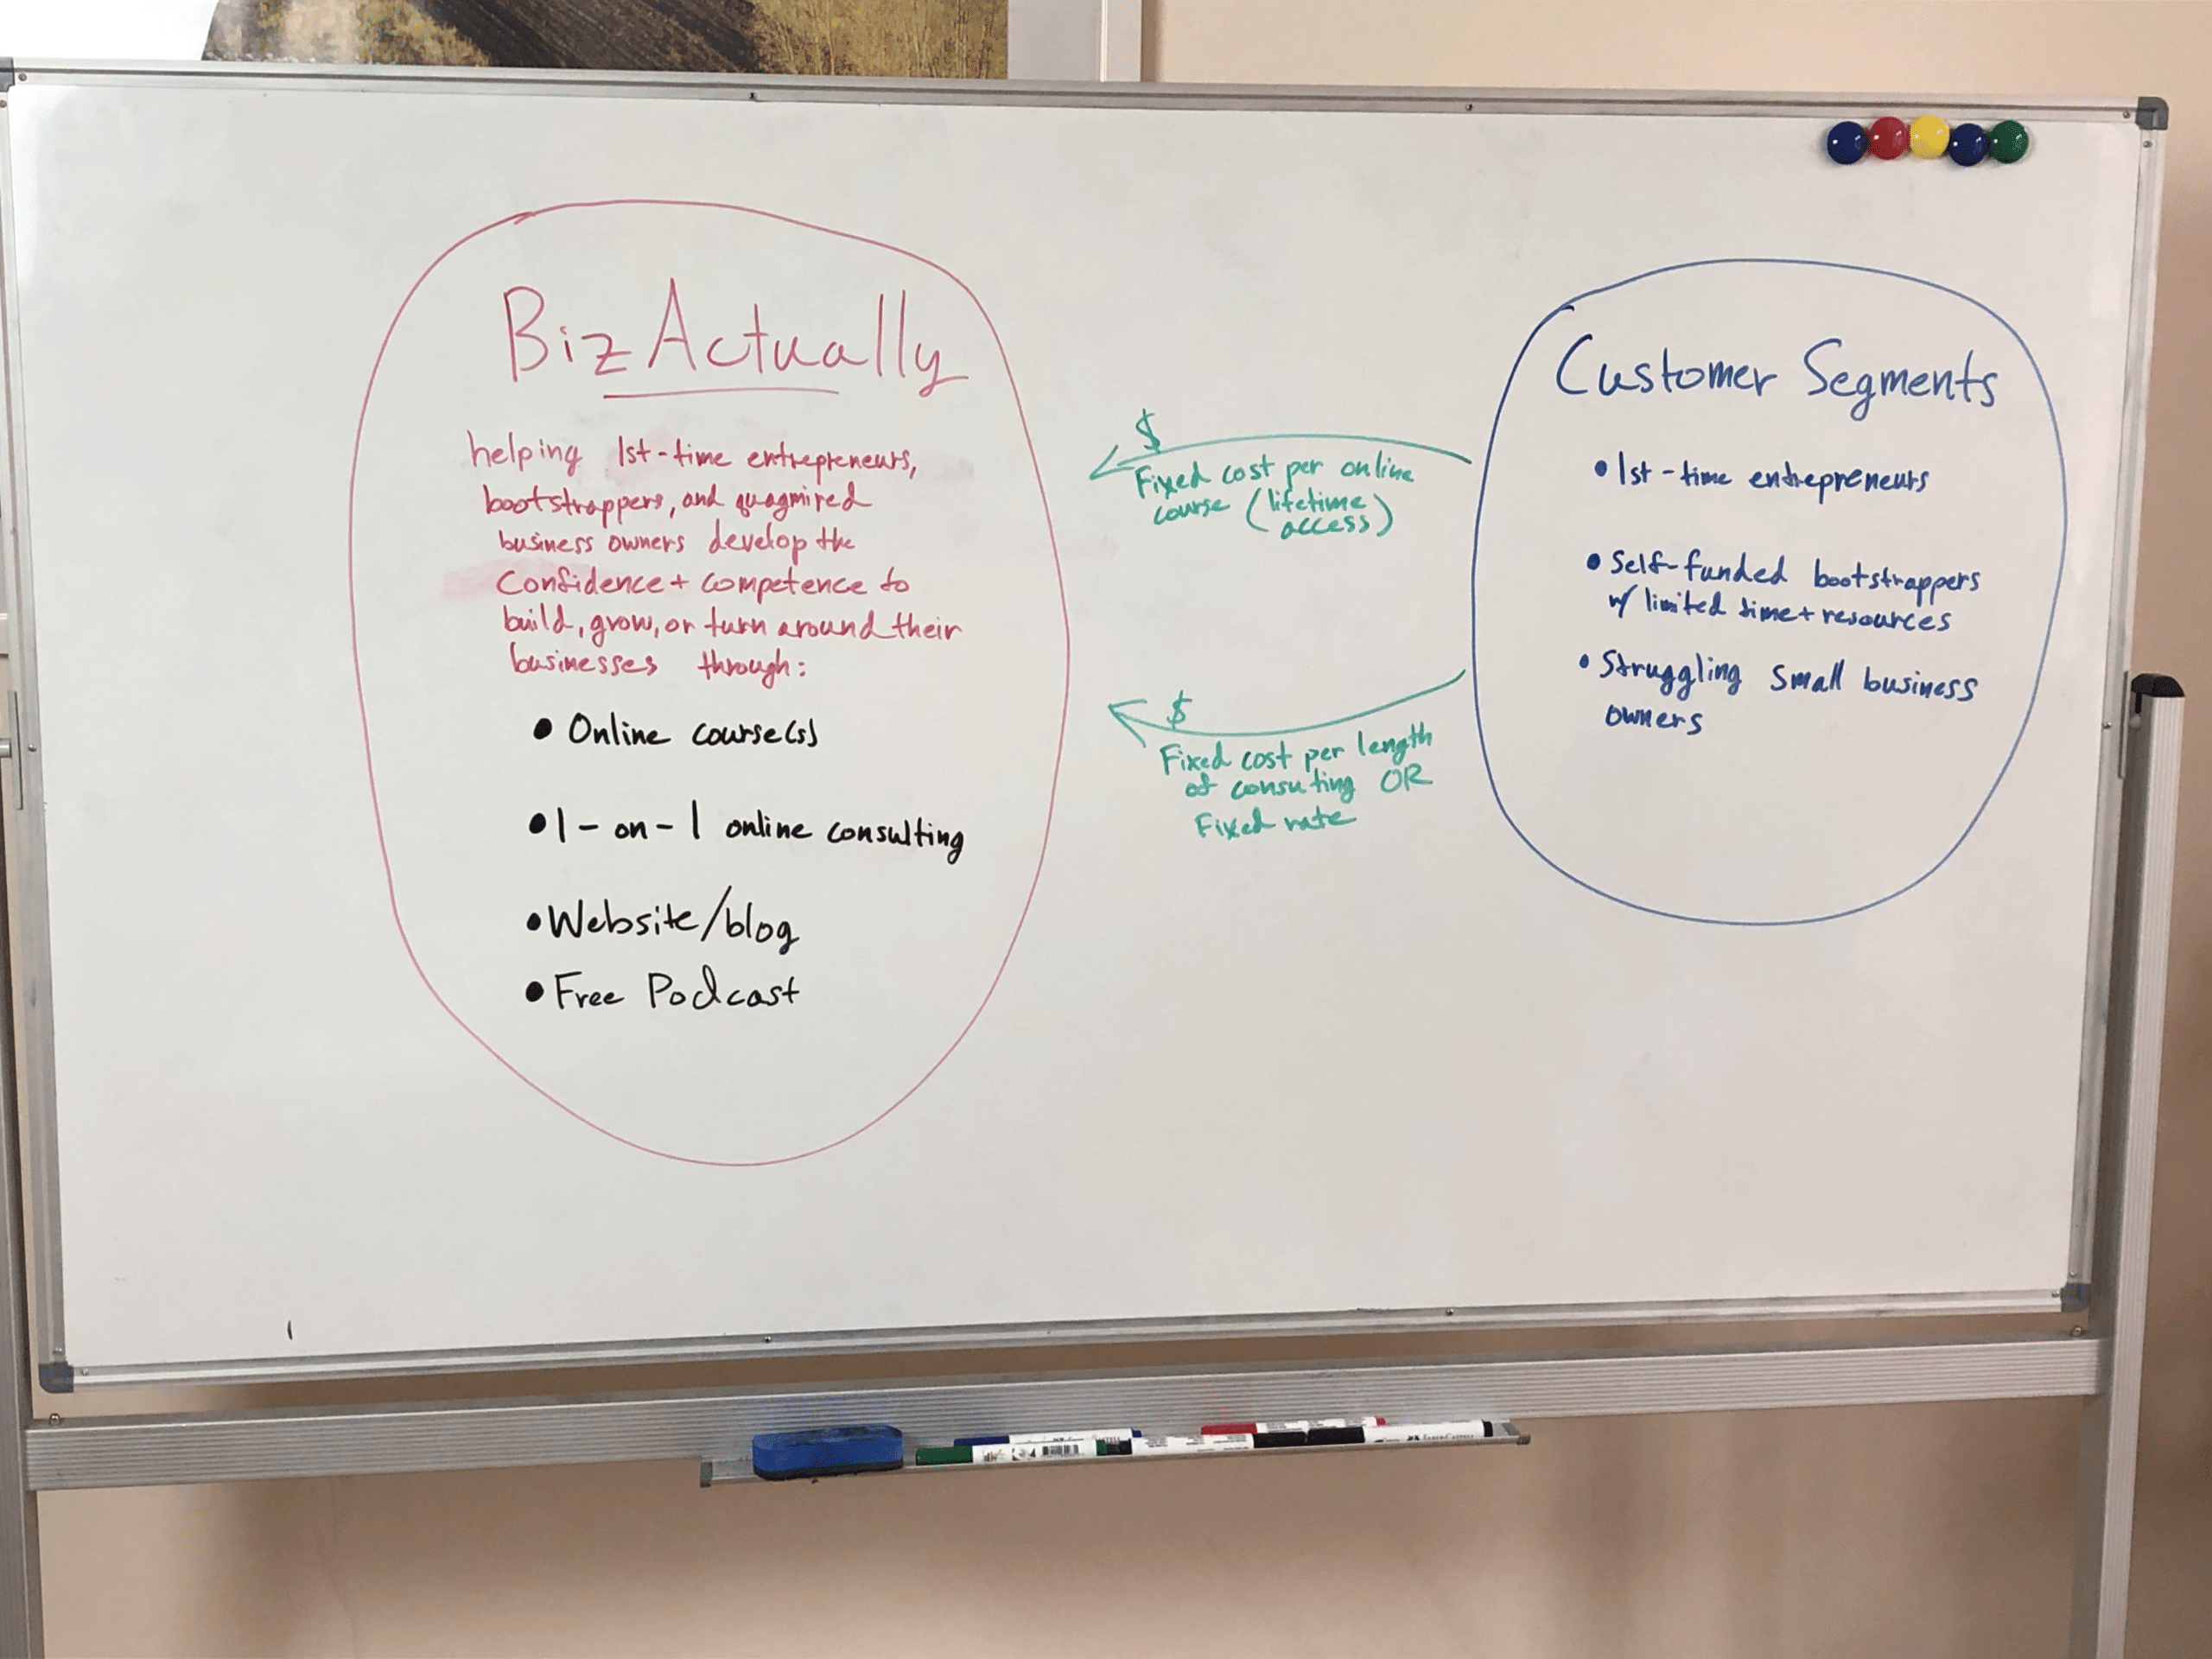 BizActually
helping 1st-time entrepreneurs,
bootstrappers, and quagmired
business owners develop the
Confidence + competence to
build, grow, or turn around their
businesses through:
• Online course(s)
• 1-on-1 online consulting
• Website/blog
• Free Podcast
$
Fixed cost per online
course (lifetime
access)
$
Fixed cost per length
of consuting OR
Fixed rate
Customer Segments
• 1st-time entrepreneurs
• Self-funded bootstrappers
w/ limited time + resources
• Struggling small business
owners